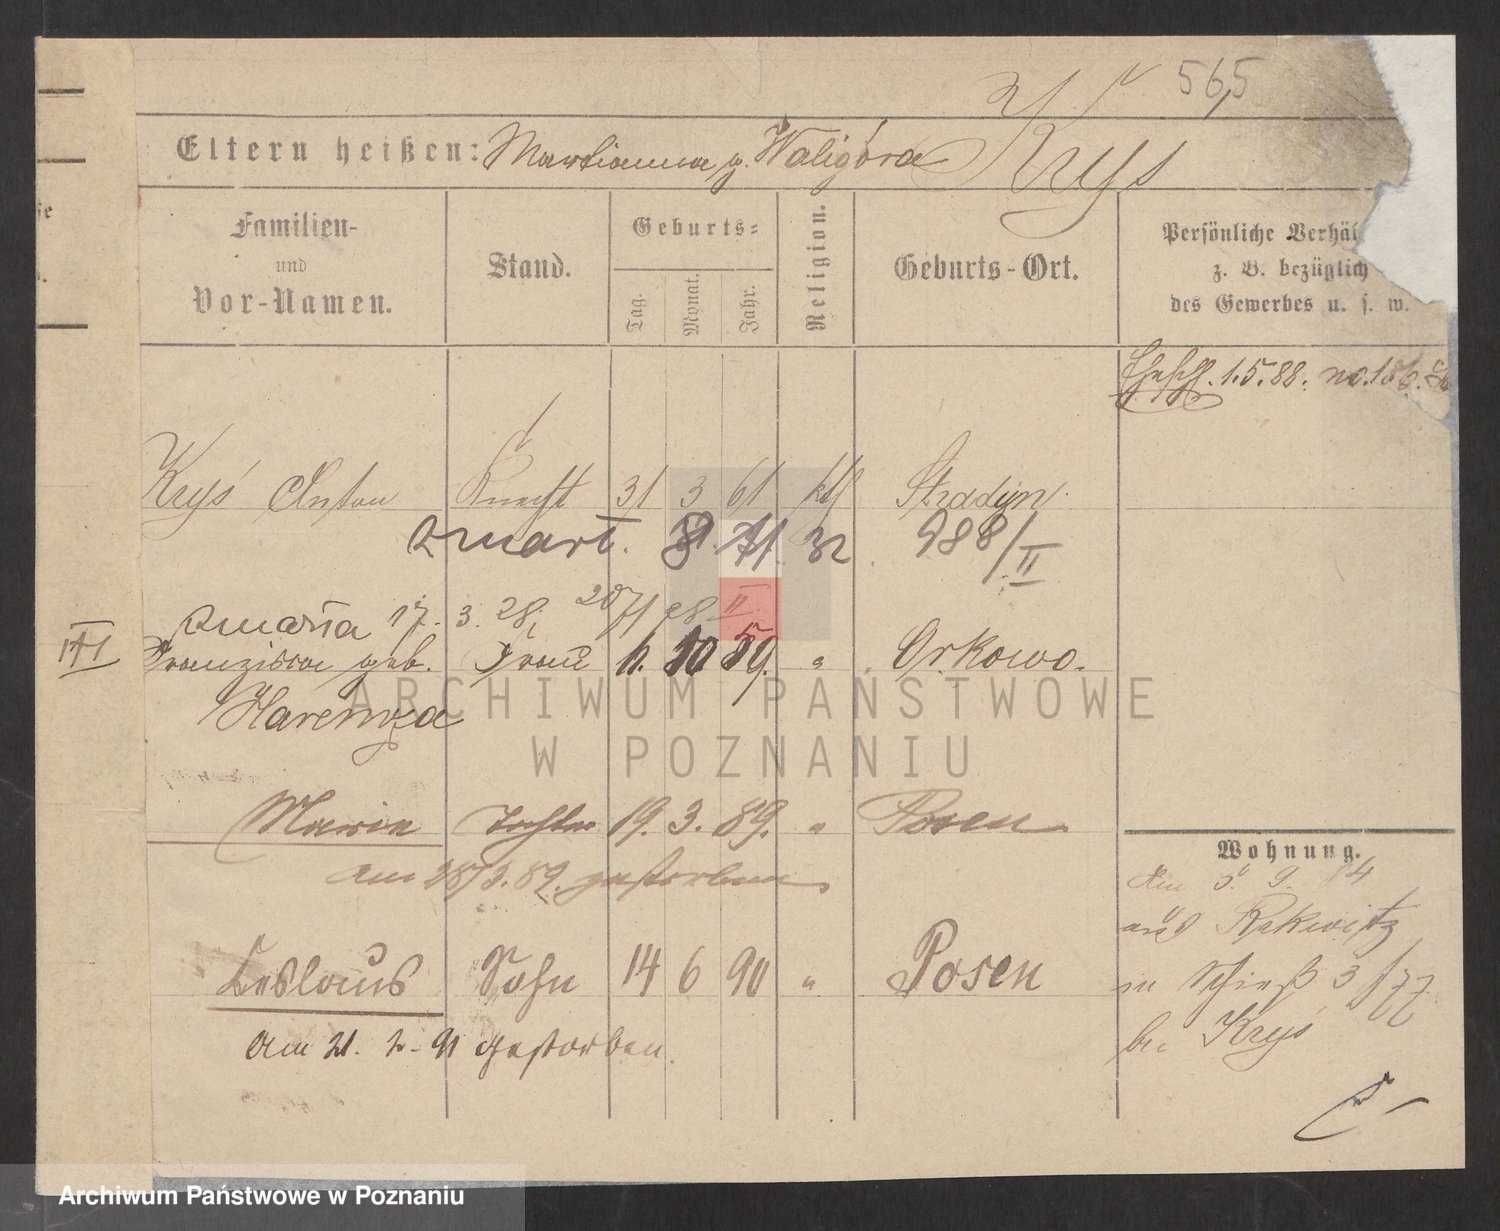 565
Eltern heißen: Marianna g. Waligóra Kryś
Familien- und Vor-Namen.
Stand.
Geburts-
Tag.
Monat.
Jahr.
Religion.
Geburts-Ort.
Persönliche Verhäl
z. B. bezüglich
des Gewerbes u. s. w.
1.5.88. no.
Kryś Anton Knecht 31 3 61 ktl Stradyn
zmarł. 71. 32 988/II
zmarła 17. 3. 28.
III
Franziska geb. Frau 10 59. " Orkowo.
Haremza
Marie Tochter 19. 3. 89. " Posen
am 28/3.89. gestorben
Ceslaus Sohn 14 6 90 " Posen
Am 21. 2. 91 gestorben.
Wohnung.
den 5. 9. 84
aus Rakwitz
in Schieß 3
bei Kryś
ARCHIWUM PAŃSTWOWE
W POZNANIU
Archiwum Państwowe w Poznaniu